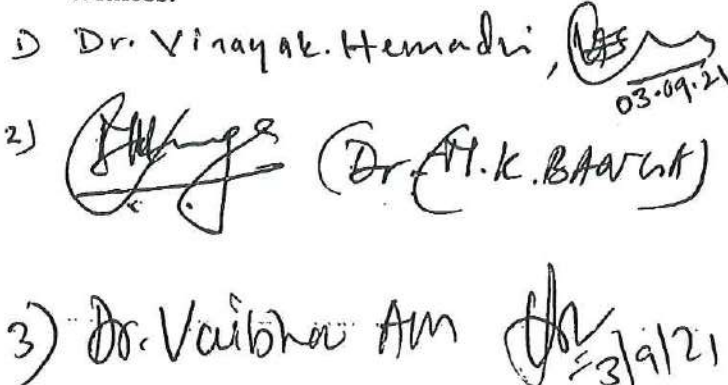 Witness:
1) Dr. Vinayak. Hemadri,
03.09.21
2) (Dr. M.K. BANGA)
3) Dr. Vaibhav Am
3/9/21